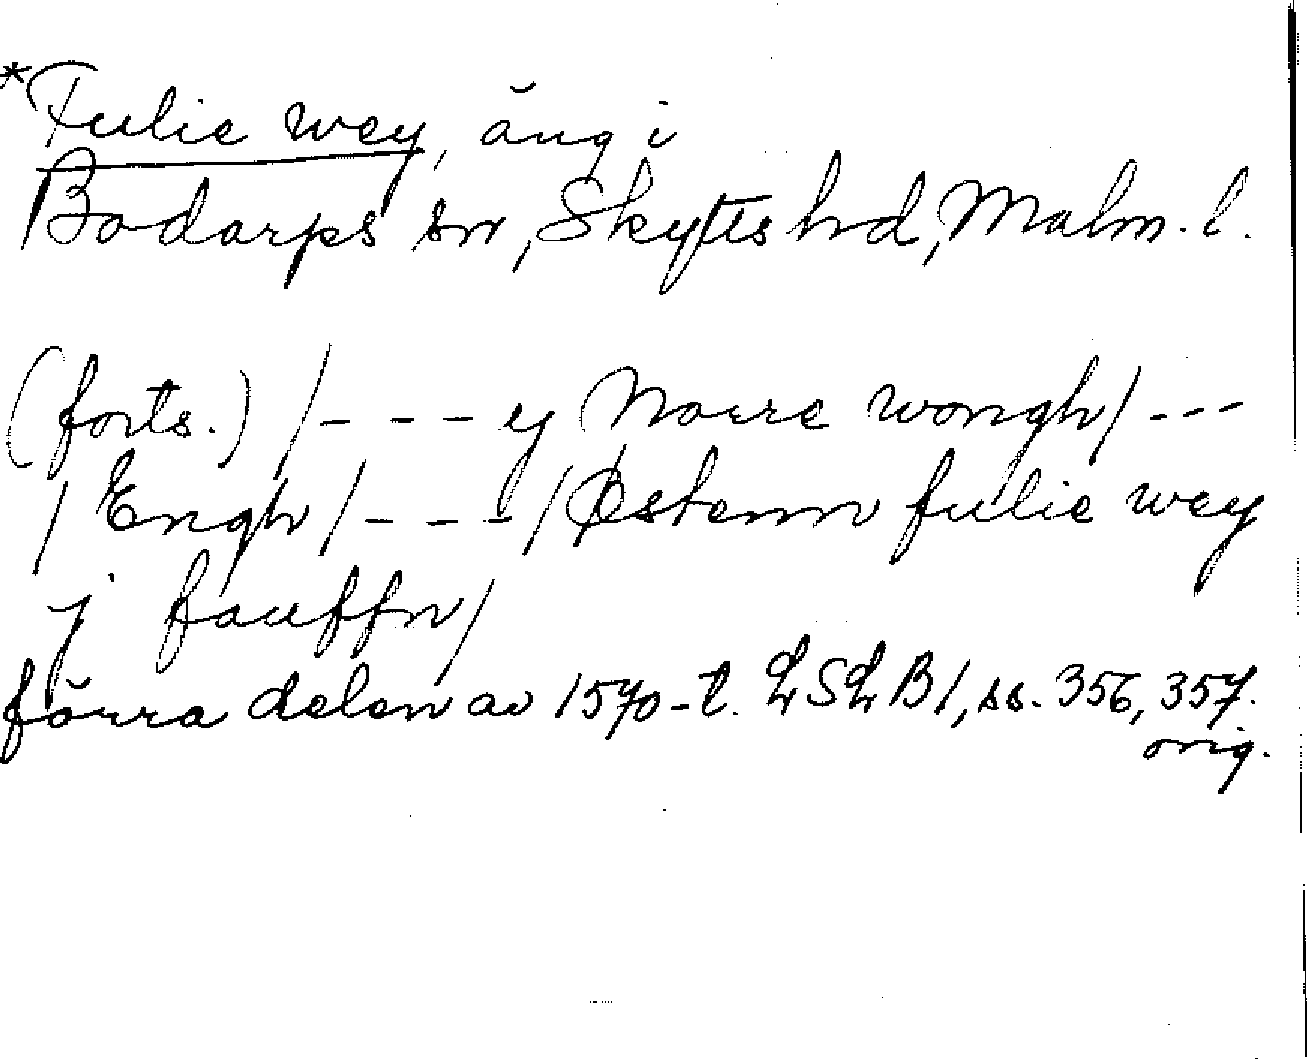 *Fulie wey, äng i
Bodarps sn, Skytts hd, Malm. l.
(forts.) /- - - ey Norre wongh/ - - -
/Engh/ - - - /Østenn fulie wey
j fauffn/
förra delen av 1570-t. LSLB1, ss. 356, 357.
orig.